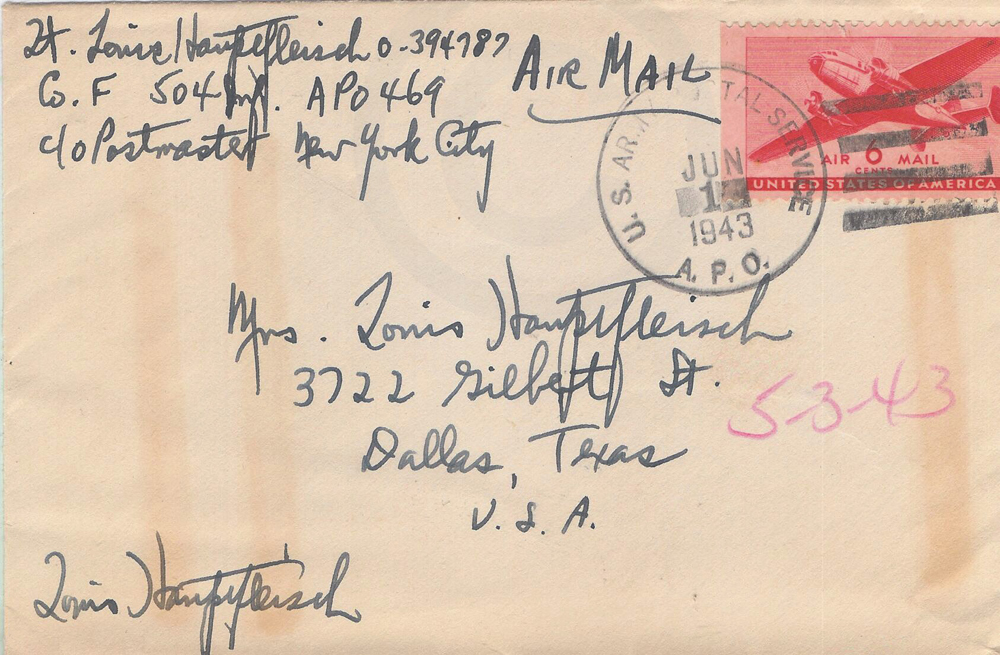 Lt. Louis Hauptfleisch O-394787
Co. F 504 Inf. APO 469
c/o Postmaster New York City
AIR MAIL
U.S. ARMY POSTAL SERVICE
JUN
1
1943
A.P.O.
AIR 6 MAIL
CENTS
UNITED STATES OF AMERICA
Mrs. Louis Hauptfleisch
3722 Gilbert St.
Dallas, Texas
U.S.A.
5-3-43
Louis Hauptfleisch